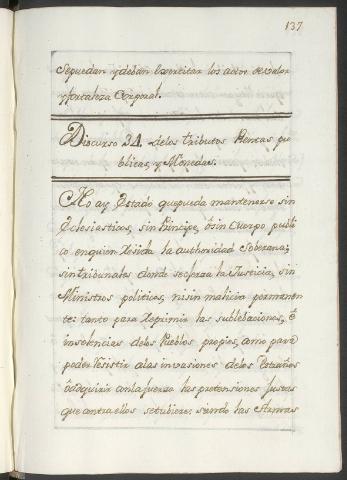 137
Sepuedan y deban Exercitar los actos de valor
y fortaleza Corporal.
Discurso 34. delos tributos Rentas pu
blicas, y Monedas.
No ay Estado quepueda mantenerse sin
Eclesiasticos, sin Principe, ô sin Cuerpo publi
co enquien Resida la authoridad Soberana;
sin tribunales donde se exerza la Justicia, sin
Ministros politicos, ni sin malicia permanen
te: tanto para Reprimir las sublebaciones, ê
insolencias delos Pueblos propios, como para
poder Resistir alas invasiones delos Estraños
ô adquirir conla fuerza las pretensiones Justas
que contra ellos setubiere: siendo las Armas